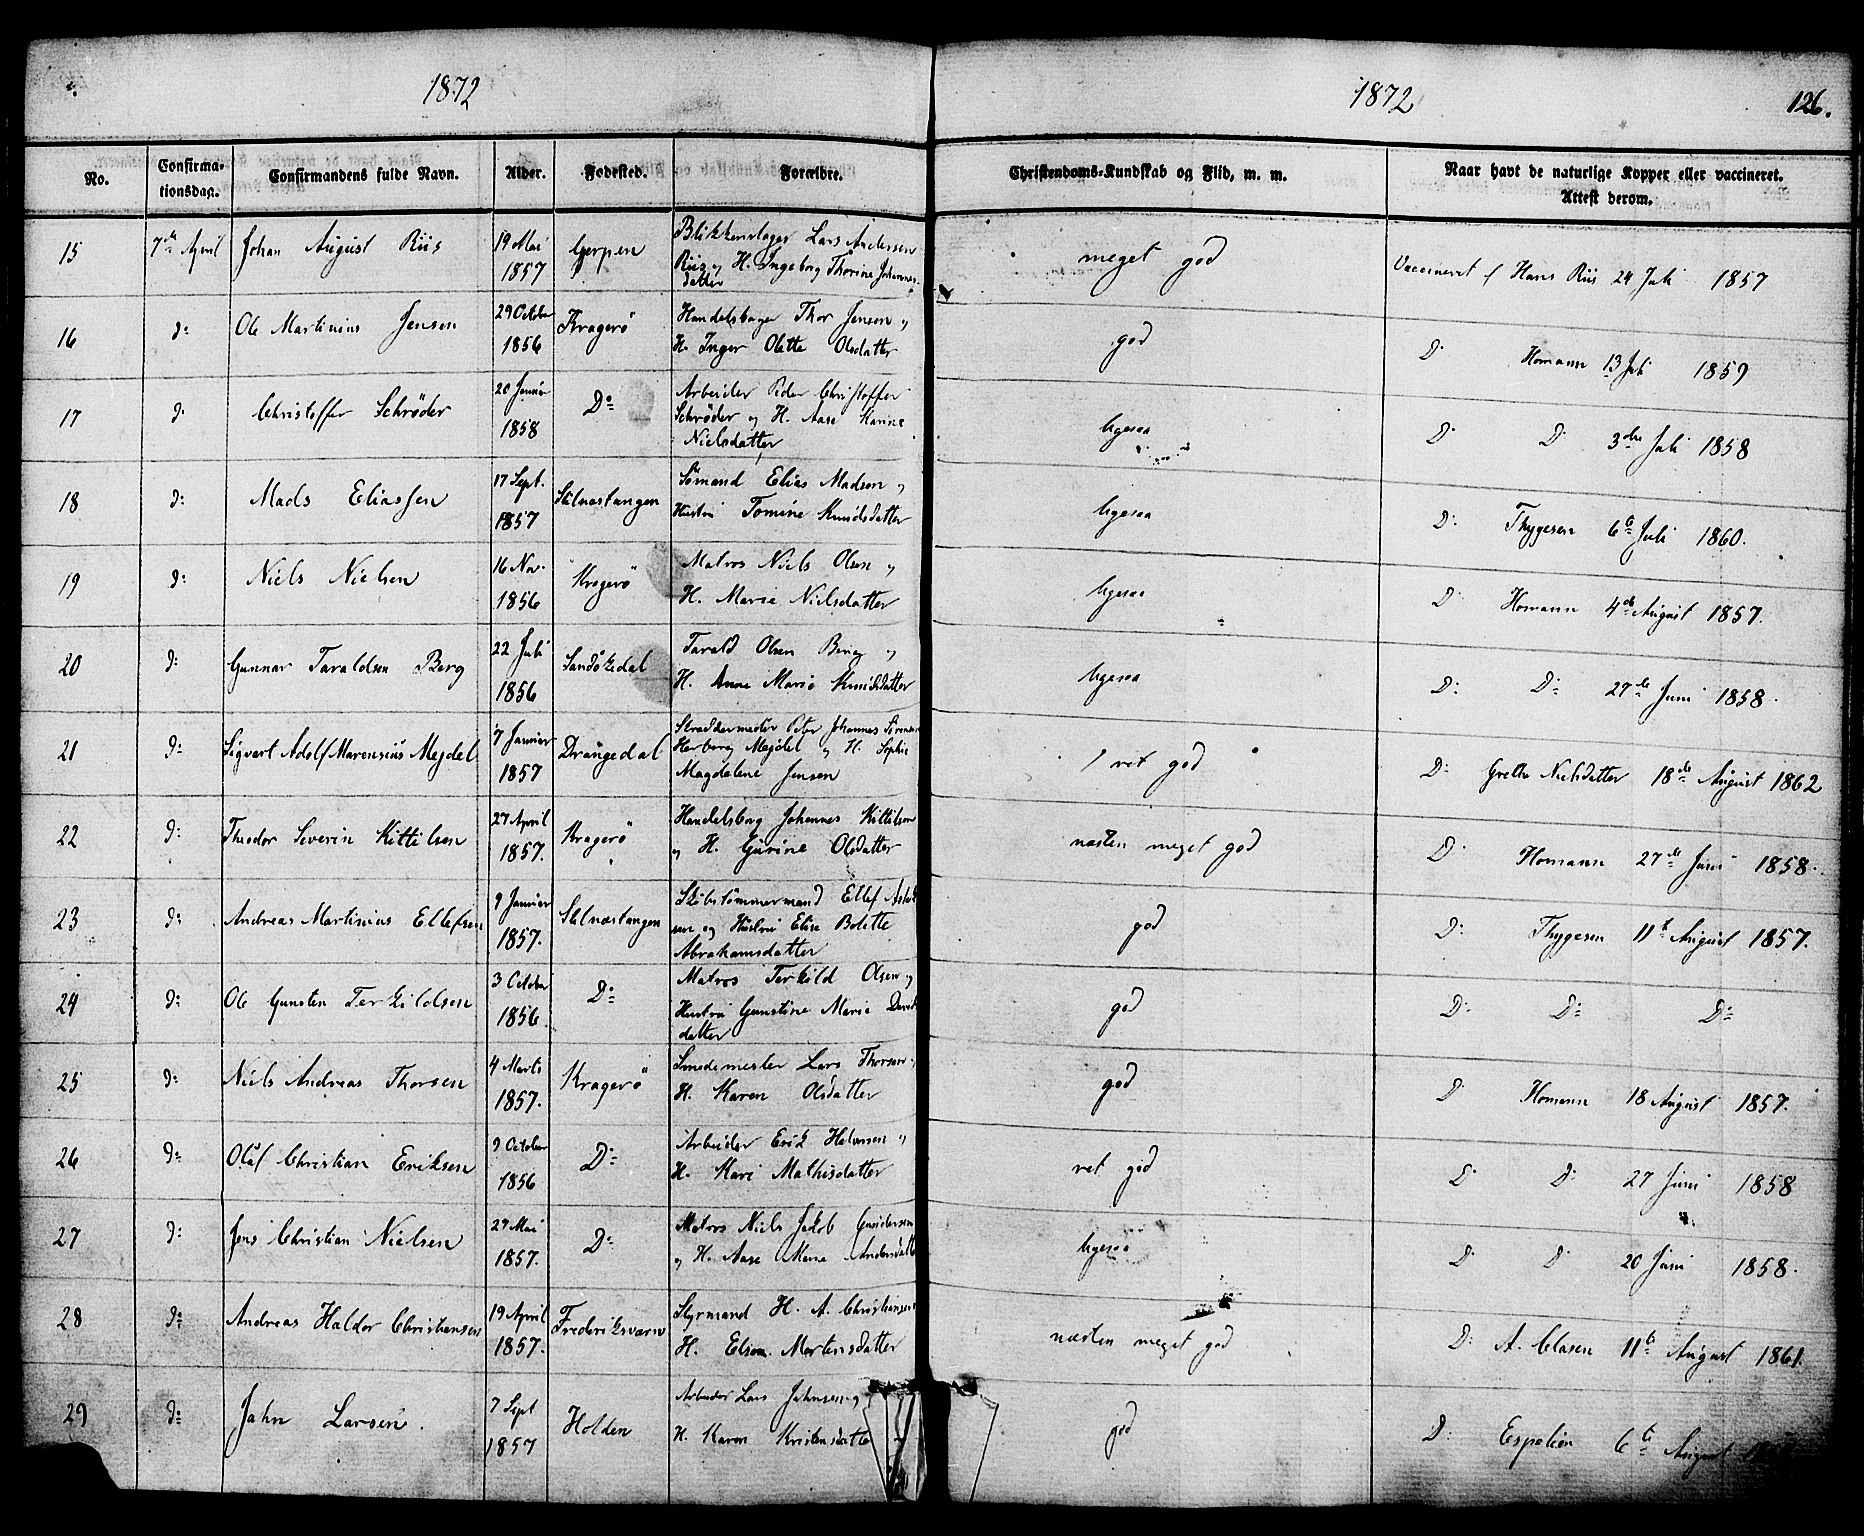 1872
1872
126.
No.
Confirma-
tionsdag.
Confirmandens fulde Navn.
Alder.
Fødested.
Forældre.
Christendoms-Kundskab og Flid, m. m.
Naar havt de naturlige Kopper eller vaccineret.
Attest derom.
15 7de April Johan August Riis 19 Mai 1857 Gjerpen
Blikkenslager Lars Andersen
Riis og H. Ingeborg Thorine Johannes-
datter
meget god
Vaccineret af Hans Riis 24 Juli 1857
16 D: Ole Martinius Jensen 29 Octobr 1856 Kragerö
Handelsborger Thor Jensen og
H. Inger Olette Olsdatter
god
D: Homann 13 Juli 1859
17 D: Christoffer Schröder 20 Januar 1858 Do
Arbeider Peder Christoffer
Schröder og H. Aase Karine
Nielsdatter
ligesaa
D: D: 3die Juli 1858
18 D: Mads Eliassen 17 Sept. 1857 Stilnæstangen
Sömand Elias Madsen og
Hustru Tomine Knudsdatter
ligesaa
D: Thygesen 6te Juli 1860.
19 D: Niels Nielsen 16 Nov. 1856 Kragerö
Matros Niels Olsen og
H. Marie Nielsdatter
ligesaa
D: Homann 4de August 1857.
20 D: Gunnar Taraldsen Berg 22 Juli 1856 Sandökedal
Tarald Olsen Berg og
H. Anne Marie Knudsdatter
ligesaa
D: D: 27de Juni 1858.
21 D: Sigvart Adolf Marensius Mejdel 7 Januar 1857 Drangedal
Skreddermester Peter Johannes
Herborg Mejdel og H. Sophie
Magdalene Jensen
ret god
D: Grethe Nielsdatter 18de August 1862
22 D: Theodor Severin Kittilsen 27 April 1857. Kragerö
Handelsborg Johannes Kittilsen
og H. Gurine Olsdatter
næsten meget god
D: Homann 27de Juni 1858.
23 D: Andreas Martinius Ellefsen 9 Januar 1857. Stilnæstangen
Skibstömmermand Ellef
sen og Hustru Elise Bolette
Abrahamsdatter
god
D: Thygesen 11te August 1857.
24 D: Ole Gunsten Terkildsen 3 October 1856 D:
Matros Terkild Olsen og
Hustru Gunstine Marie David
datter
god
D: D: D:
25 D: Niels Andreas Thorsen 4 Marts 1857. Kragerö
Smedemester Lars Thorsen og
H. Karen Olsdatter
god
D: Homann 18 August 1857.
26 D: Oluf Christian Eriksen 9 October 1856 D:
Arbeider Erik Halvorsen og
H. Kari Mathisdatter
ret god
D: D: 27 Juni 1858
27 D: Jens Christian Nielsen 29 Mai 1857. D:
Matros Niels Jakob Gundersen
og H. Aase Marie Andersdatter
ligesaa
D: D: 20 Juni 1858.
28 D: Andreas Haldor Christiansen 19 April 1857. Frederiksværn
Styrmand H. A. Christiansen
H. Elisa. Mortensdatter
næsten meget god
D: A. Clasen 11te August 1861.
29 D: Jahn Larsen. 7 Sept 1857 Holden
Arbeider Lars Jahnsen og
H. Karen Kristensdatter
god
D: Espelien 6te August